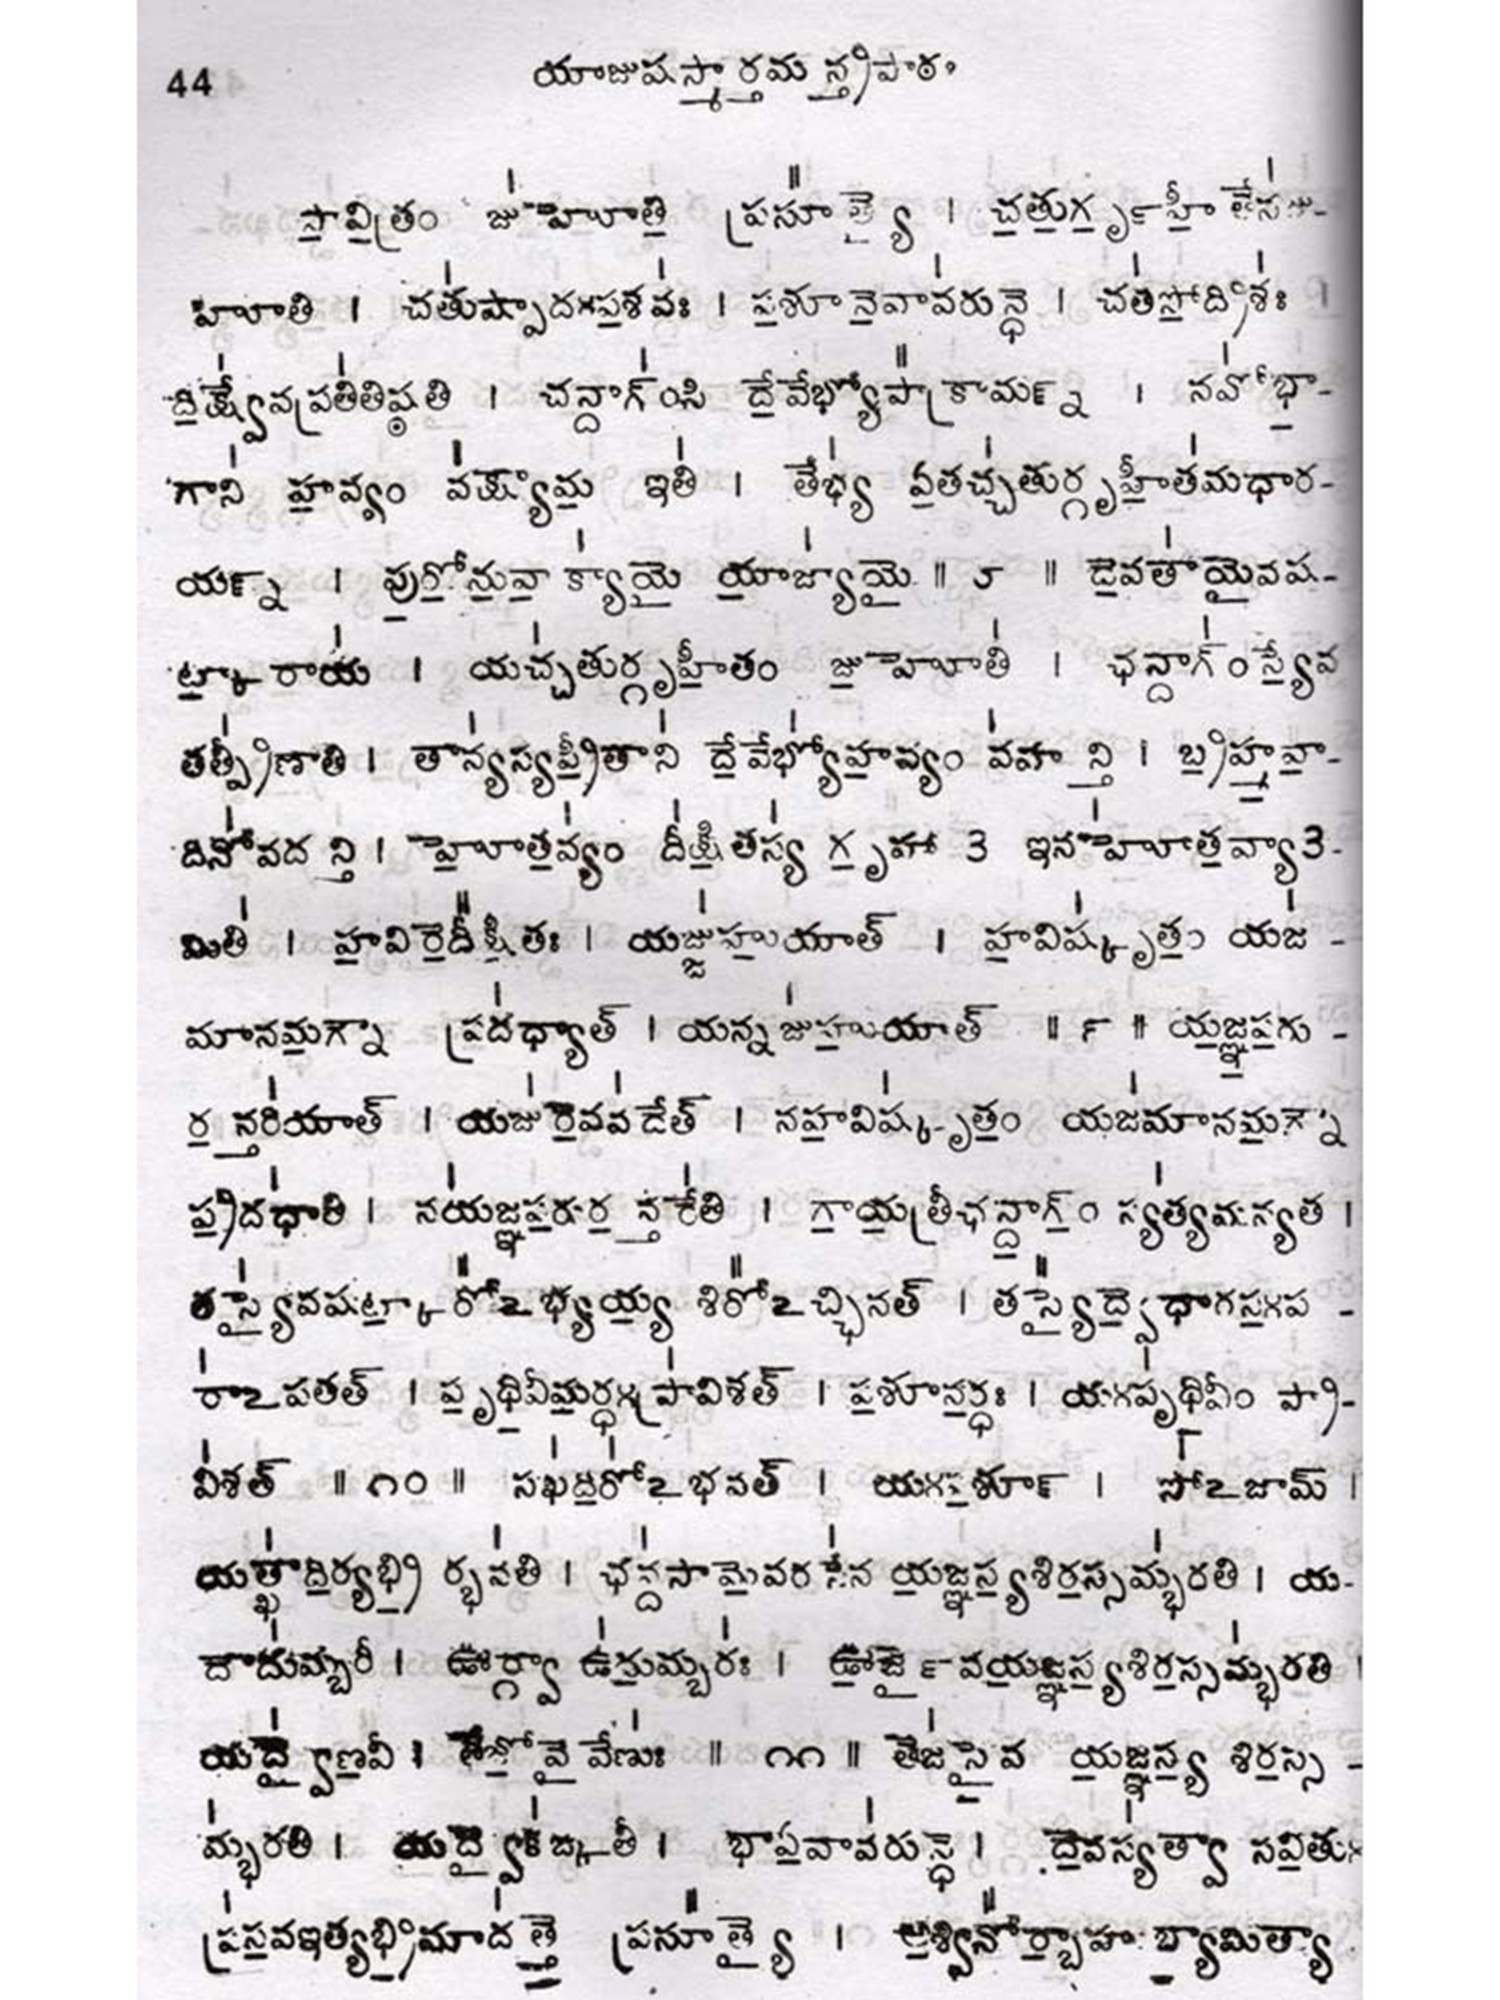 44 యాజుషస్మార్తమన్త్రపాఠః
సా॒వి॒త్రం జు॑హోతి॒ ప్రసూ᳚త్యై । చ॒తు॒ర్గృ॒హీ॒తేన॑జు-
హోతి । చతు॑ష్పాదఃప॒శవః॑ । ప॒శూనే॒వావ॑రున్ధే । చత॑స్రో॒దిశః॑ ।
ది॒క్ష్వే॑వప్రతి॑తిష్ఠతి । ఛన్దాగ్ం॑సి దే॒వేభ్యోపా᳚క్రామన్న్ । నవో॑భా॒-
గాని॑ హ॒వ్యం వ॑క్ష్యామ॒ ఇతి॑ । తేభ్య॑ ఏ॒తచ్చ॑తుర్గృహీ॒తమ॑ధార-
యన్న్ । పు॒రో॒ను॒వా॒క్యా॑యై యా॒జ్యా॑యై ॥ ౮ ॥ దే॒వతా॑యైవష-
ట్కా॒రాయ॑ । యచ్చ॑తుర్గృహీ॒తం జు॒హోతి॑ । ఛన్దాగ్ం॑స్యే॒వ
తత్ప్రీ॑ణాతి । తాన్య॑స్యప్రీ॒తాని॑ దే॒వేభ్యో॑హ॒వ్యం వ॑హన్తి । బ్ర॒హ్మ॒వా॒-
దినో॑వదన్తి । హో॒త॒వ్యం॑ దీ॑క్షి॒తస్య॑ గృ॒హా 3 ఇన॑హోత॒వ్యా3-
మితి॑ । హ॒విర్వైదీ᳚క్షి॒తః । యజ్జు॑హు॒యాత్ । హ॒విష్కృ॑తం॒ యజ॑-
మానమ॒గ్నౌ ప్రద॑ధ్యాత్ । యన్నజు॑హు॒యాత్ ॥ ౯ ॥ య॒జ్ఞ॒ప॒రు-
ర॒న్తరి॑యాత్ । యజు॑రే॒వవ॑దేత్ । నహ॒విష్కృ॑తం॒ యజ॑మానమ॒గ్నౌ
ప్ర॒దధా॑తి । నయ॑జ్ఞప॒రుర॒న్తరే॑తి । గా॒య॒త్రీఛన్దా॒గ్ం స్యత్య॑మన్యత ।
తస్యై॑వషట్కా॒రో᳚ఽభ్యయ్య॒ శిరో᳚ఽచ్ఛినత్ । తస్యై᳚ద్వే॒ధారస॒ఃప-
రా॑ఽపతత్ । పృ॒థి॒వీమ॒ర్ధఃప్రావి॑శత్ । ప॒శూన॒ర్ధః । యఃపృ॑థి॒వీం ప్రా-
వి॑శత్ ॥ ౧౦ ॥ సఖ॑ది॒రో॑ఽభవత్ । యఃప॒శూన్ । సో॑ఽజామ్ ।
యత్ఖా॑ది॒ర్యభ్రి॒ర్భవ॑తి । ఛన్ద॑సామే॒వరసే॑న య॒జ్ఞస్య॒శిర॒స్సమ్భ॑రతి । య-
దౌదు॑మ్బరీ । ఊర్గ్వా ఉ॑దు॒మ్బరః॑ । ఊ॒ర్జైవయ॒జ్ఞస్య॒శిర॒స్సమ్భ॑రతి ।
యద్వై॑ణ॒వీ । తేజో॒వై వేణుః॑ ॥ ౧౧ ॥ తేజ॑సై॒వ య॒జ్ఞస్య॒ శిర॒స్స-
మ్భ॑రతి । యద్వైక॑ఙ్కతీ । భాఏ॒వావ॑రున్ధే । దే॒వస్య॑త్వా సవి॒తుః
ప్ర॑స॒వఇత్యభ్రి॒మాద॑త్తే॒ ప్రసూ᳚త్యై । అ॒శ్వినో᳚ర్బా॒హుభ్యా॒మిత్యా